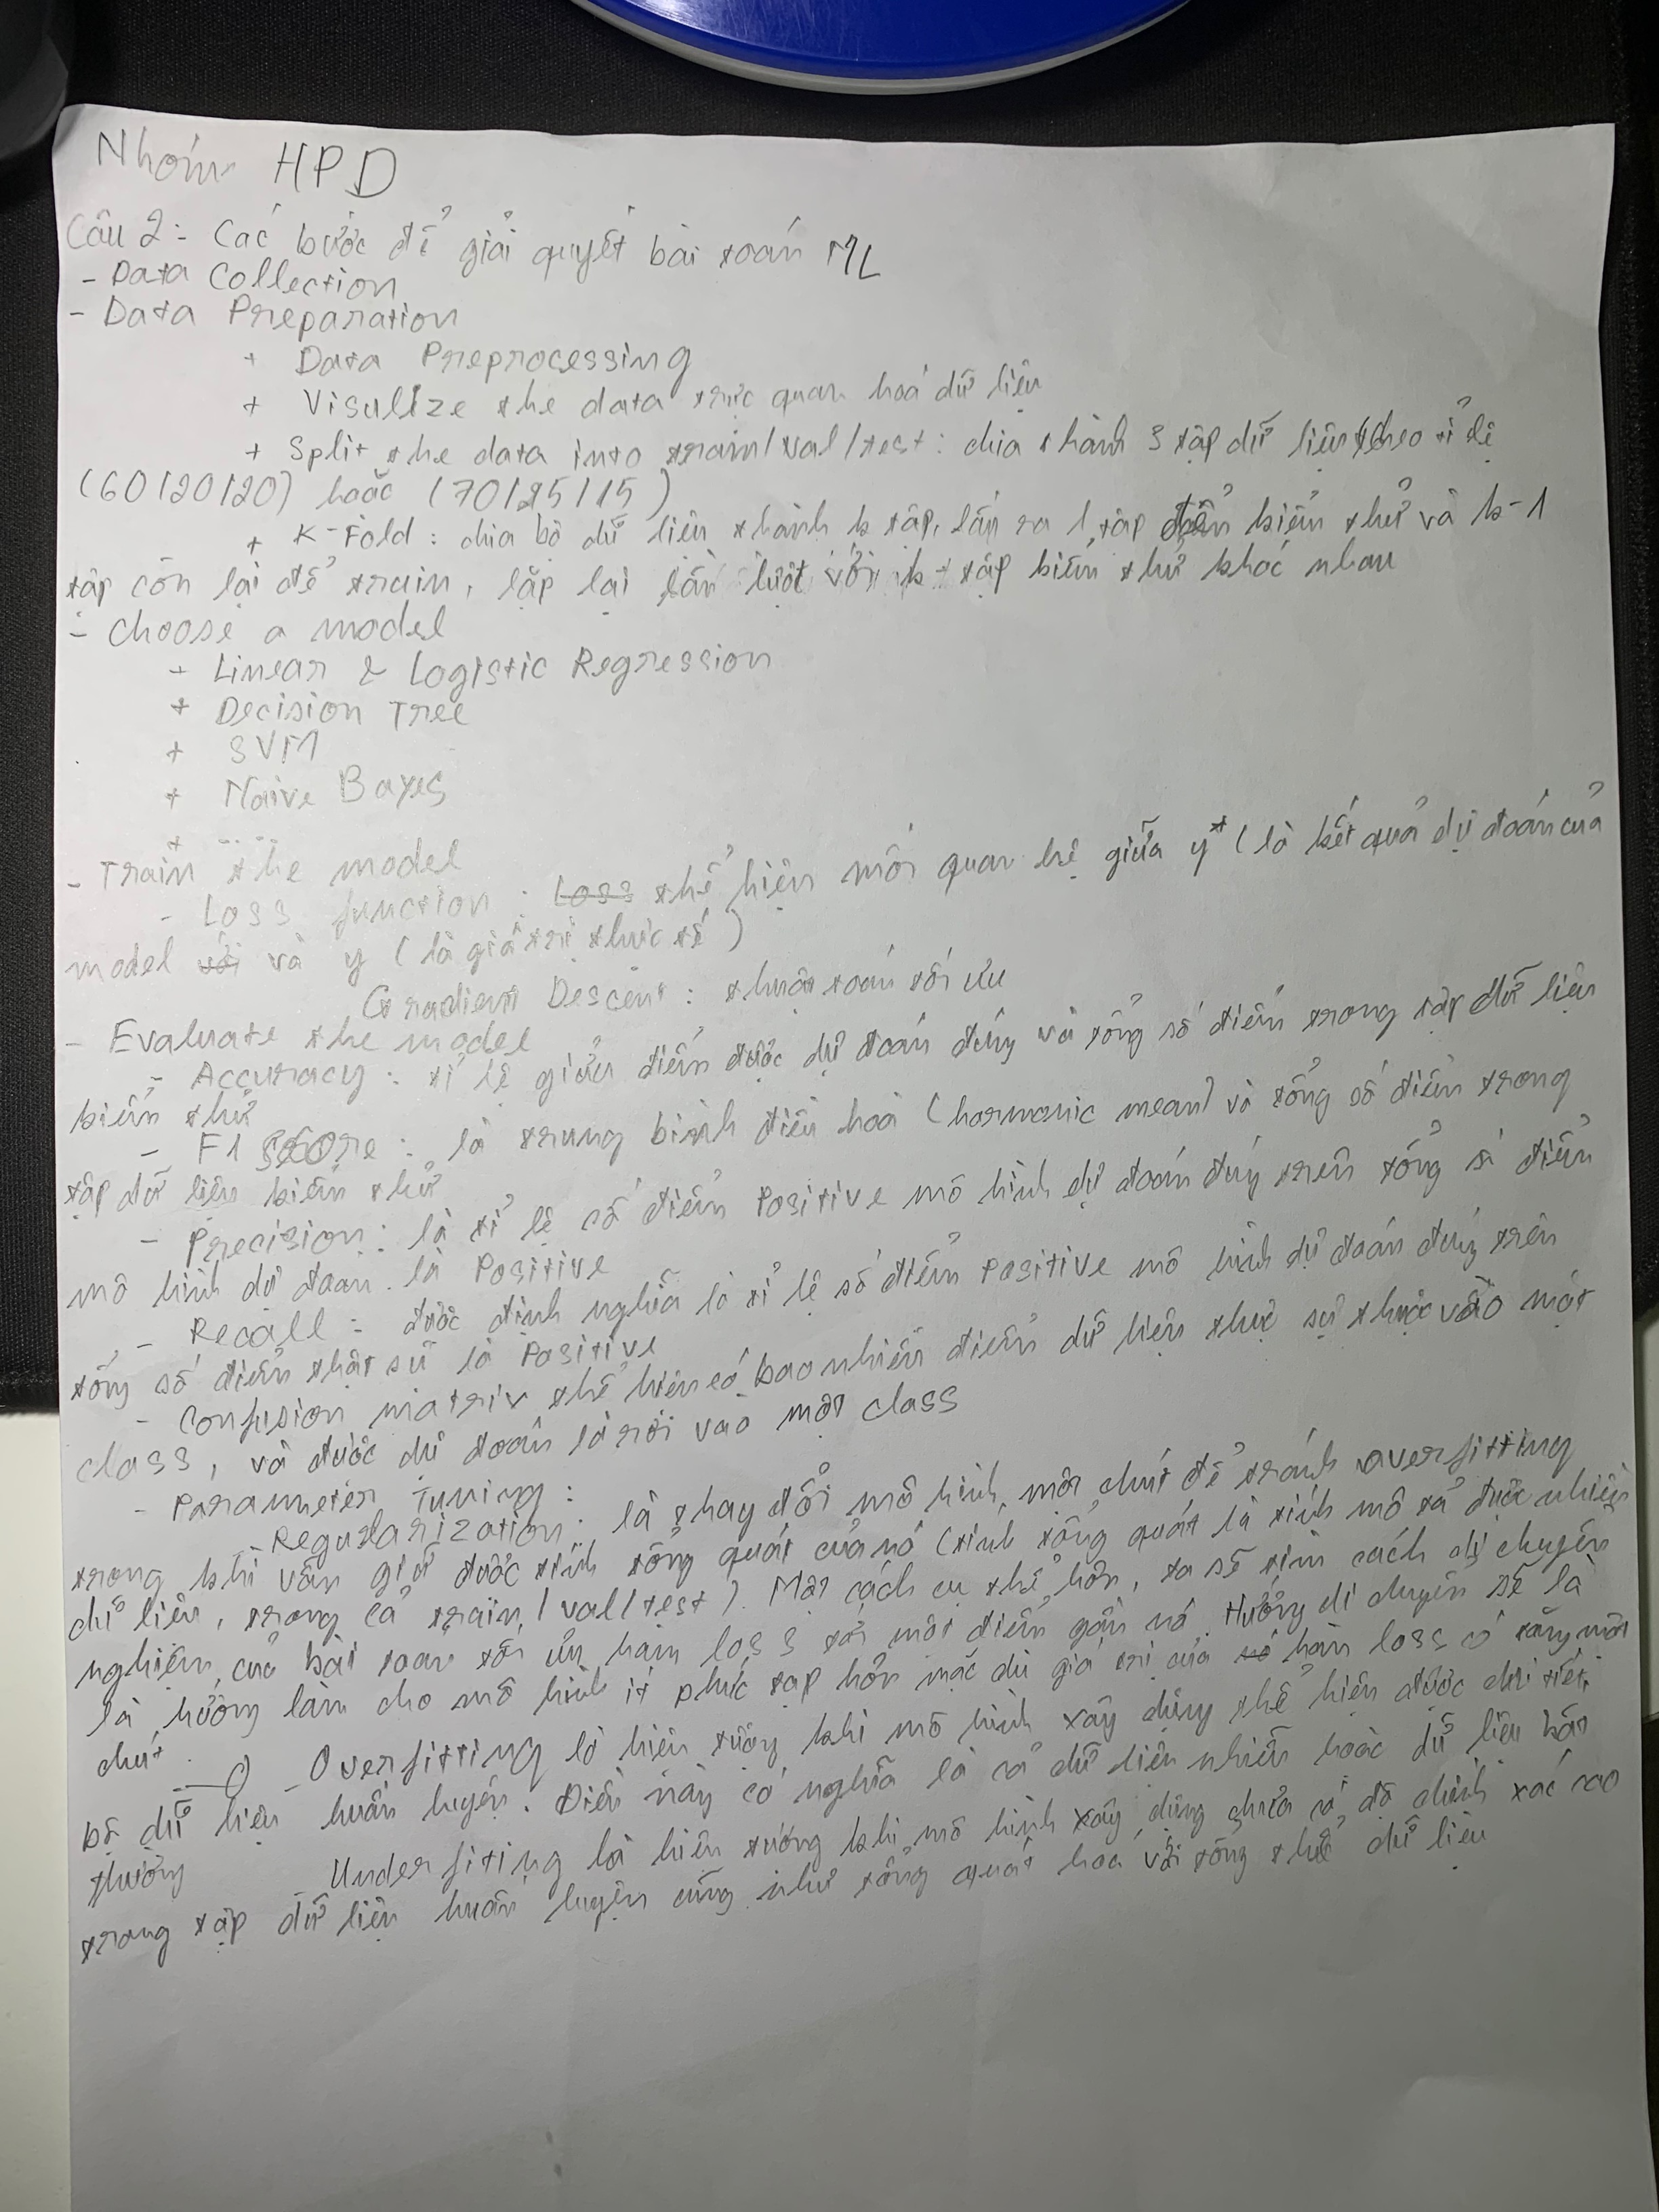 Nhóm HPD
Câu 2: Các bước để giải quyết bài toán ML
- Data Collection
- Data Preparation
+ Data Preprocessing
+ Visulize the data trực quan hoá dữ liệu
+ Split the data into train/val/test: chia thành 3 tập dữ liệu theo tỉ lệ
(60/20/20) hoặc (70/15/15)
+ K-Fold: chia bộ dữ liệu thành k tập, lấy ra 1 tập để kiểm thử và k-1
tập còn lại để train, lặp lại lần lượt với k tập kiểm thử khác nhau
- Choose a model
+ Linear & Logistic Regression
+ Decision Tree
+ SVM
+ Naive Bayes
+ ....
- Train the model
- Loss function: Loss thể hiện mối quan hệ giữa y* (là kết quả dự đoán của
model với và y (là giá trị thực tế)
Gradient Descent: thuật toán tối ưu
- Evaluate the model
- Accuracy: tỉ lệ giữa điểm được dự đoán đúng và tổng số điểm trong tập dữ liệu
kiểm thử
- F1 Score: là trung bình điều hoà (harmonic mean) và tổng số điểm trong
tập dữ liệu kiểm thử
- Precision: là tỉ lệ số điểm Positive mô hình dự đoán đúng trên tổng số điểm
mô hình dự đoán là Positive
- Recall: được định nghĩa là tỉ lệ số điểm Positive mô hình dự đoán đúng trên
tổng số điểm thật sự là Positive
- Confusion matrix thể hiện có bao nhiêu điểm dữ liệu thực sự thuộc vào một
class, và được dự đoán là rơi vào một class
- Parameter Tuning:
- Regularization: là thay đổi mô hình một chút để tránh overfitting
trong khi vẫn giữ được tính tổng quát của nó (tính tổng quát là tính mô tả được nhiều
dữ liệu, trong cả train/val/test). Một cách cụ thể hơn, ta sẽ tìm cách di chuyển
nghiệm của bài toán tối ưu hàm loss tới một điểm gần nó. Hướng di chuyển sẽ là
là hướng làm cho mô hình ít phức tạp hơn mặc dù giá trị của hàm loss có tăng một
chút.
- Overfitting là hiện tượng khi mô hình xây dựng thể hiện được chi tiết
bộ dữ liệu huấn luyện. Điều này có nghĩa là cả dữ liệu nhiễu hoặc dữ liệu bất
thường
- Underfiting là hiện tượng khi mô hình xây dựng chưa có độ chính xác cao
trong tập dữ liệu huấn luyện cũng như tổng quát hoá với tổng thể dữ liệu